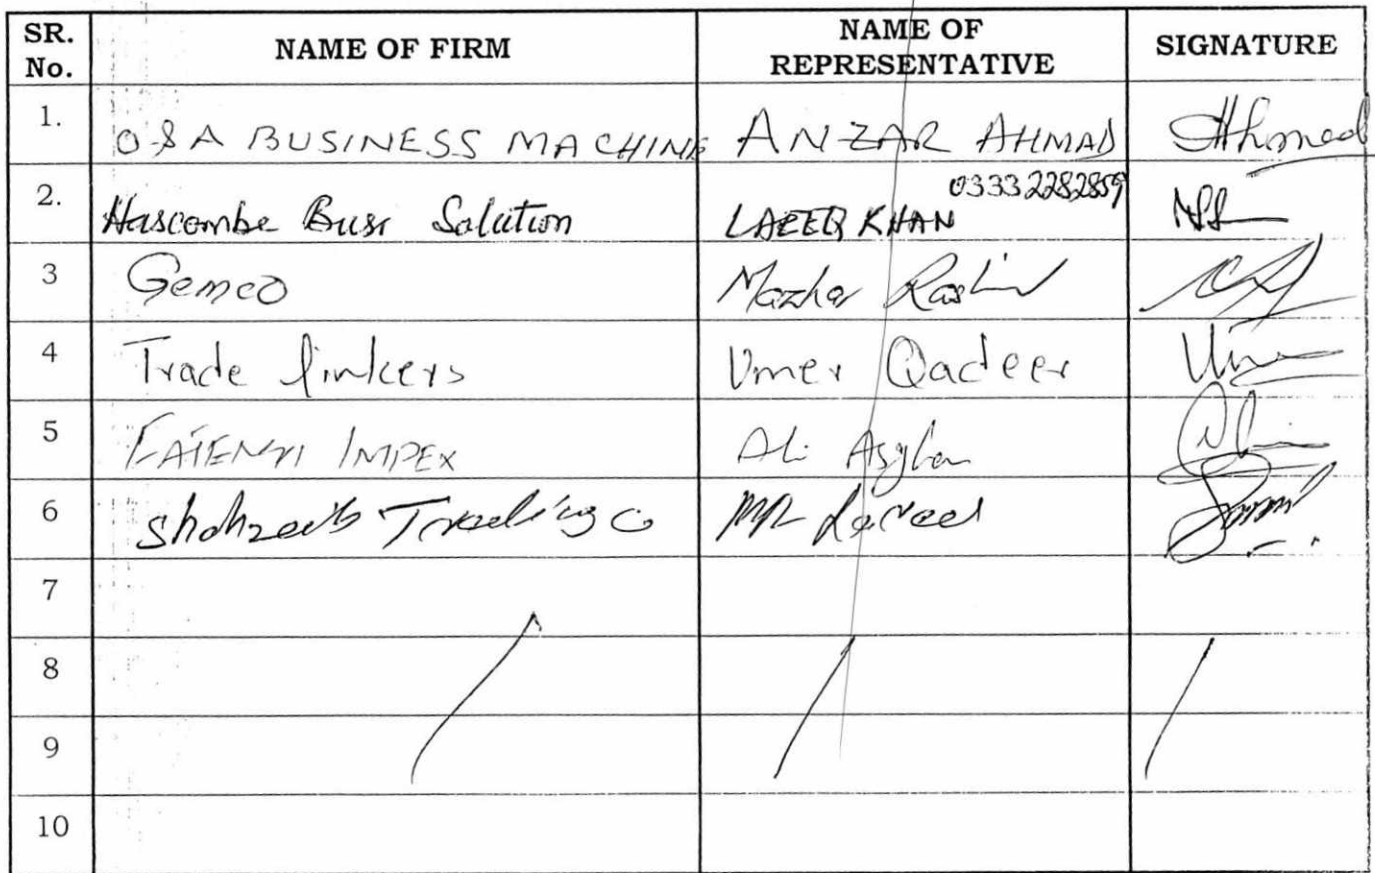 SR. No. NAME OF FIRM NAME OF REPRESENTATIVE SIGNATURE
1. O&A BUSINESS MACHINE ANZAR AHMAD Ahmed
03332282859
2. Hascombe Busi Solution LAEEQ KHAN
3 Gemco Mazhar Rashid
4 Trade linkers Umer Qadeer
5 IMPEX Ali Asghar
6 Shahzeib Trading Co MR
7
8
9
10